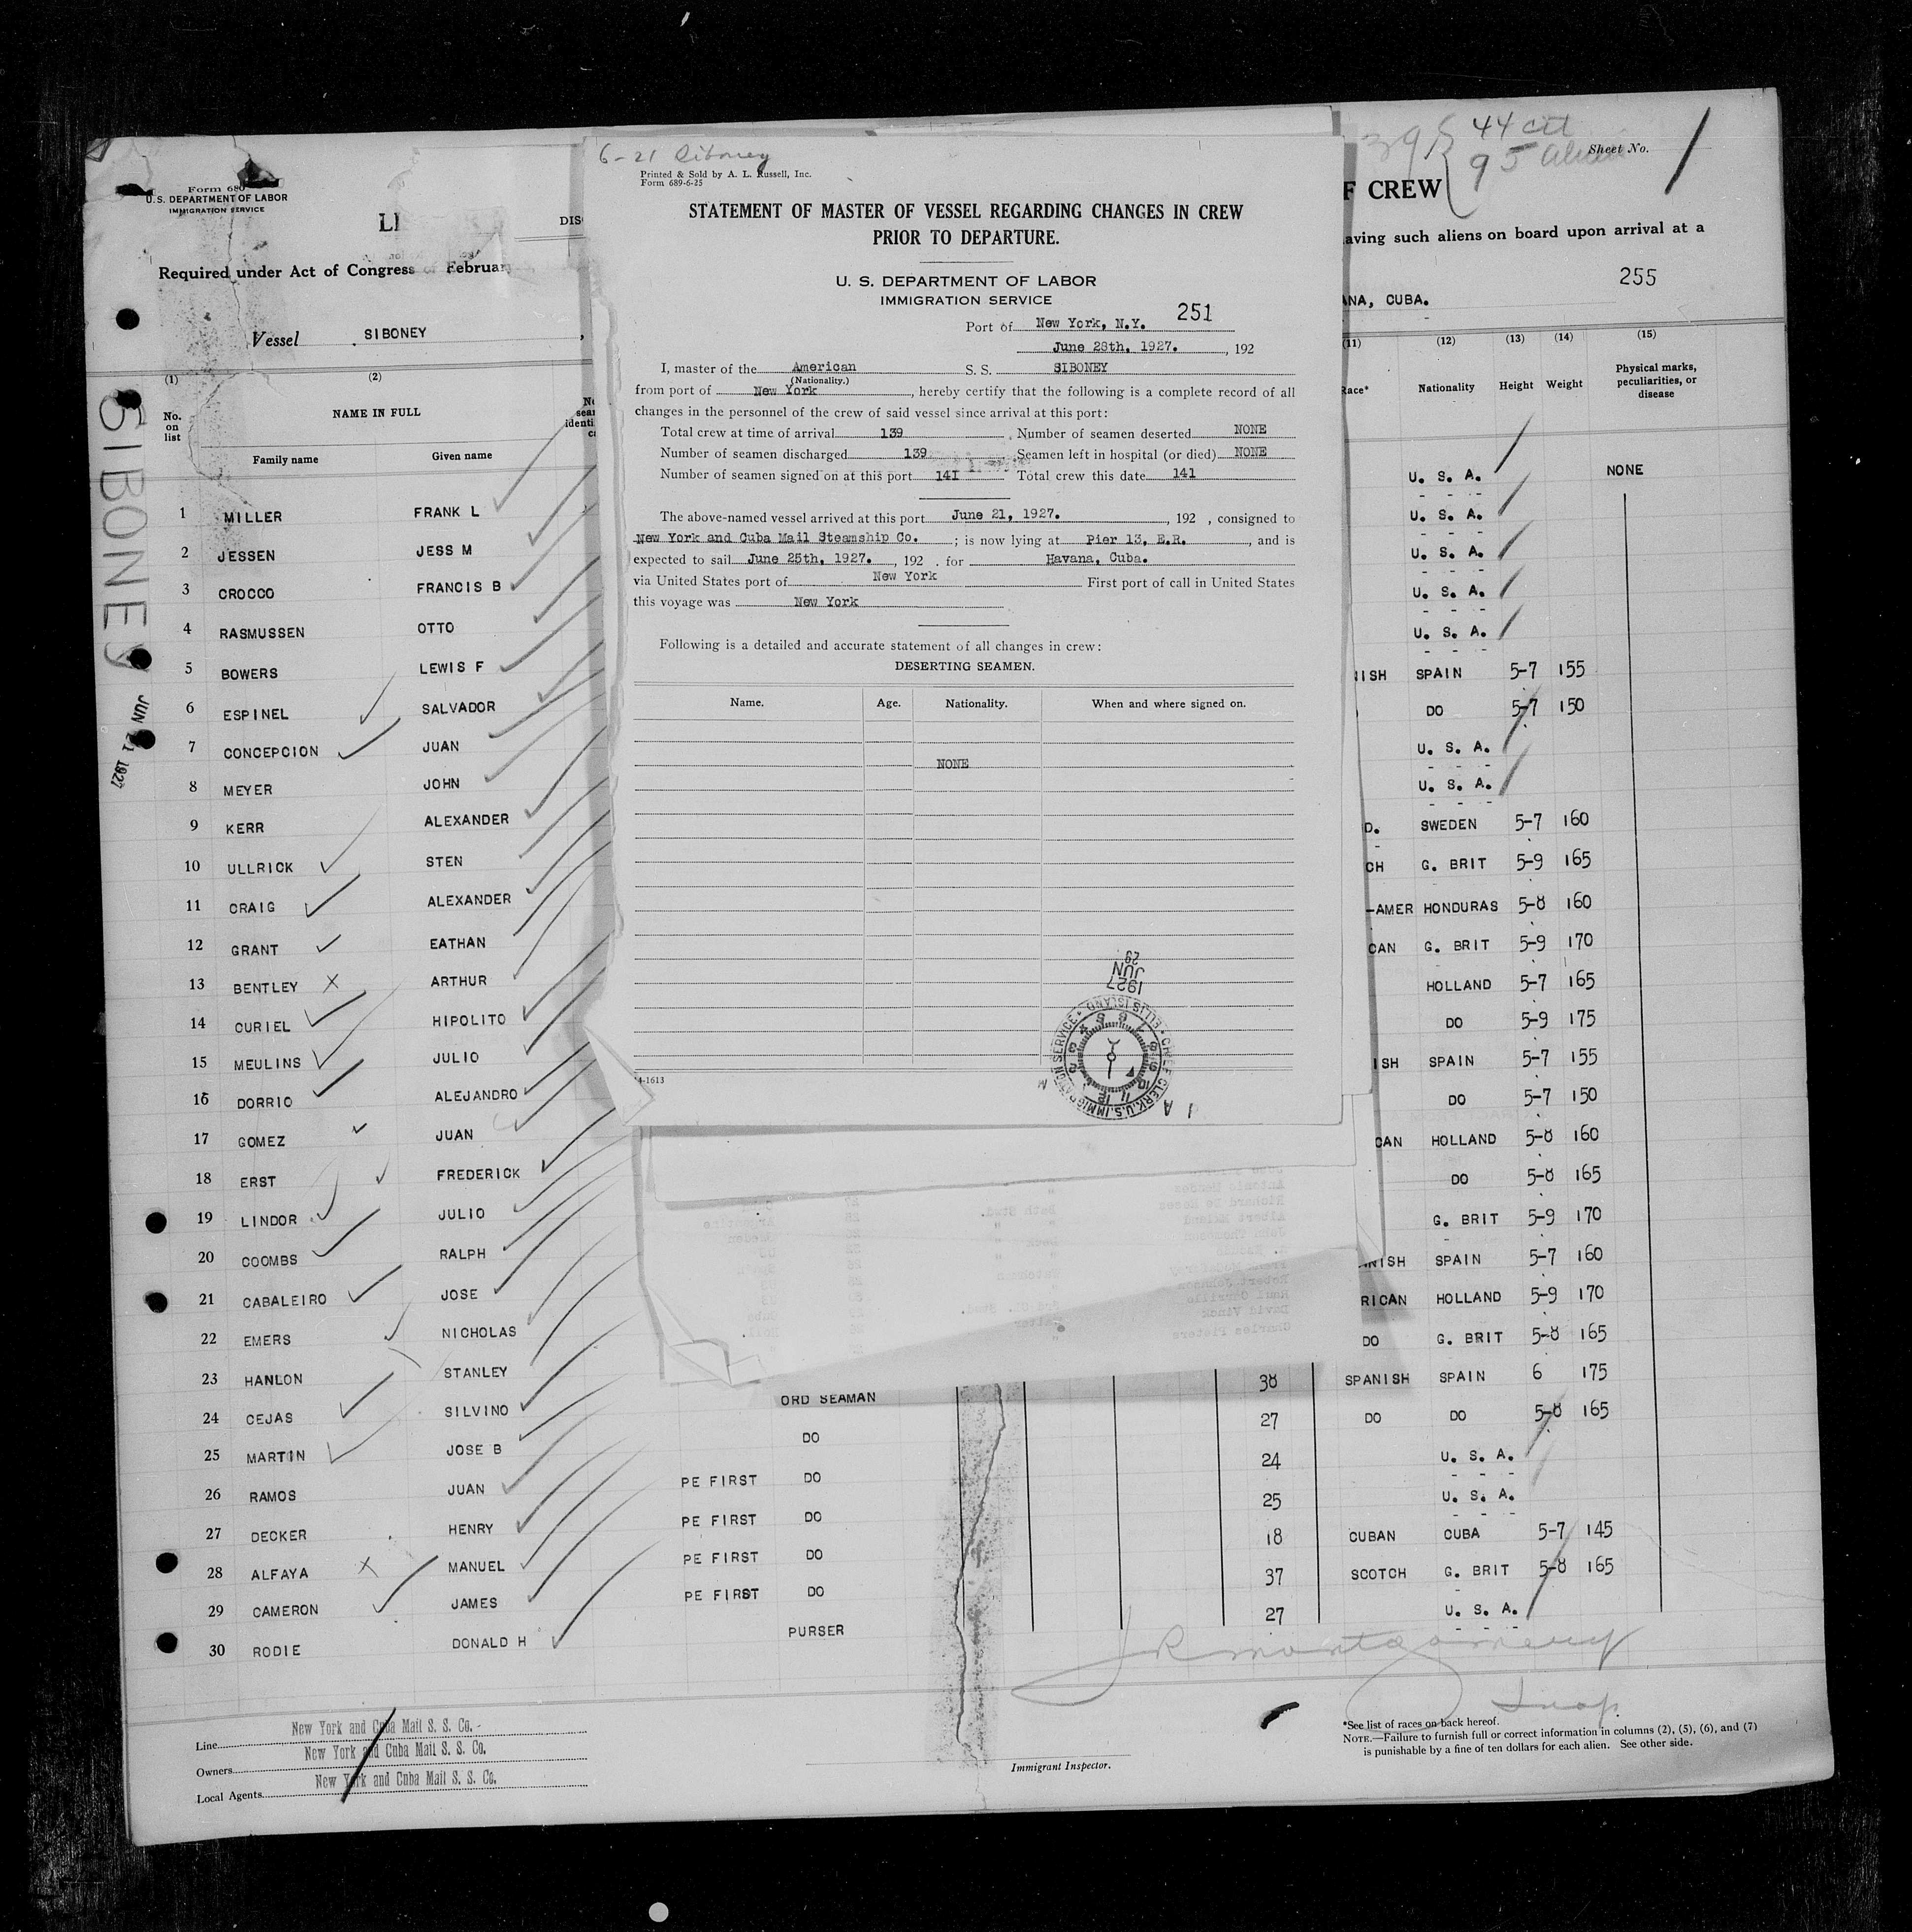 6-21 Siboney
Printed & Sold by A. L. Russell, Inc.
Form 689-6-25
STATEMENT OF MASTER OF VESSEL REGARDING CHANGES IN CREW
PRIOR TO DEPARTURE.
U. S. DEPARTMENT OF LABOR
IMMIGRATION SERVICE
251
Port of New York, N.Y.
June 28th, 1927. , 192
I, master of the American S. S. SIBONEY
(Nationality.)
from port of New York , hereby certify that the following is a complete record of all
changes in the personnel of the crew of said vessel since arrival at this port:
Total crew at time of arrival 139 Number of seamen deserted NONE
Number of seamen discharged 139 Seamen left in hospital (or died) NONE
Number of seamen signed on at this port 141 Total crew this date 141
The above-named vessel arrived at this port June 21, 1927. , 192 , consigned to
New York and Cuba Mail Steamship Co. ; is now lying at Pier 13, E.R. , and is
expected to sail June 25th, 1927. , 192 . for Havana, Cuba.
via United States port of New York First port of call in United States
this voyage was New York
Following is a detailed and accurate statement of all changes in crew:
DESERTING SEAMEN.
Name. Age. Nationality. When and where signed on.
NONE
29
JUN
1927
CHIEF CLERK, U.S. IMMIGRATION SERVICE
ELLIS ISLAND
4-1613
Form 680
U.S. DEPARTMENT OF LABOR
IMMIGRATION SERVICE
LI
DIS
F CREW
44 cit
95 alien
Sheet No. 1
Required under Act of Congress of Februar
aving such aliens on board upon arrival at a
255
Vessel SIBONEY ,
ANA, CUBA.
SIBONEY
JUN 21 1927
(1) (2) (11) (12) (13) (14) (15)
No. on list NAME IN FULL Race* Nationality Height Weight Physical marks, peculiarities, or disease
Family name Given name
1 MILLER FRANK L U. S. A. NONE
2 JESSEN JESS M U. S. A.
3 CROCCO FRANCIS B U. S. A.
4 RASMUSSEN OTTO U. S. A.
5 BOWERS LEWIS F U. S. A.
6 ESPINEL SALVADOR NISH SPAIN 5-7 155
7 CONCEPCION JUAN DO 5-7 150
8 MEYER JOHN U. S. A.
9 KERR ALEXANDER U. S. A.
10 ULLRICK STEN D. SWEDEN 5-7 160
11 CRAIG ALEXANDER CH G. BRIT 5-9 165
12 GRANT EATHAN -AMER HONDURAS 5-8 160
13 BENTLEY ARTHUR CAN G. BRIT 5-9 170
14 CURIEL HIPOLITO HOLLAND 5-7 165
15 MEULINS JULIO DO 5-9 175
16 DORRIO ALEJANDRO ISH SPAIN 5-7 155
17 GOMEZ JUAN DO 5-7 150
18 ERST FREDERICK CAN HOLLAND 5-8 160
19 LINDOR JULIO DO 5-8 165
20 COOMBS RALPH G. BRIT 5-9 170
21 CABALEIRO JOSE NISH SPAIN 5-7 160
22 EMERS NICHOLAS RICAN HOLLAND 5-9 170
23 HANLON STANLEY DO G. BRIT 5-8 165
24 CEJAS SILVINO ORD SEAMAN 38 SPANISH SPAIN 6 175
25 MARTIN JOSE B DO 27 DO DO 5-8 165
26 RAMOS JUAN PE FIRST DO 24 U. S. A.
27 DECKER HENRY PE FIRST DO 25 U. S. A.
28 ALFAYA MANUEL PE FIRST DO 18 CUBAN CUBA 5-7 145
29 CAMERON JAMES PE FIRST DO 37 SCOTCH G. BRIT 5-8 165
30 RODIE DONALD H PURSER 27 U. S. A.
J R Montgomery
Insp.
Line New York and Cuba Mail S. S. Co.
Owners New York and Cuba Mail S. S. Co.
Local Agents New York and Cuba Mail S. S. Co.
Immigrant Inspector.
*See list of races on back hereof.
NOTE.—Failure to furnish full or correct information in columns (2), (5), (6), and (7)
is punishable by a fine of ten dollars for each alien. See other side.